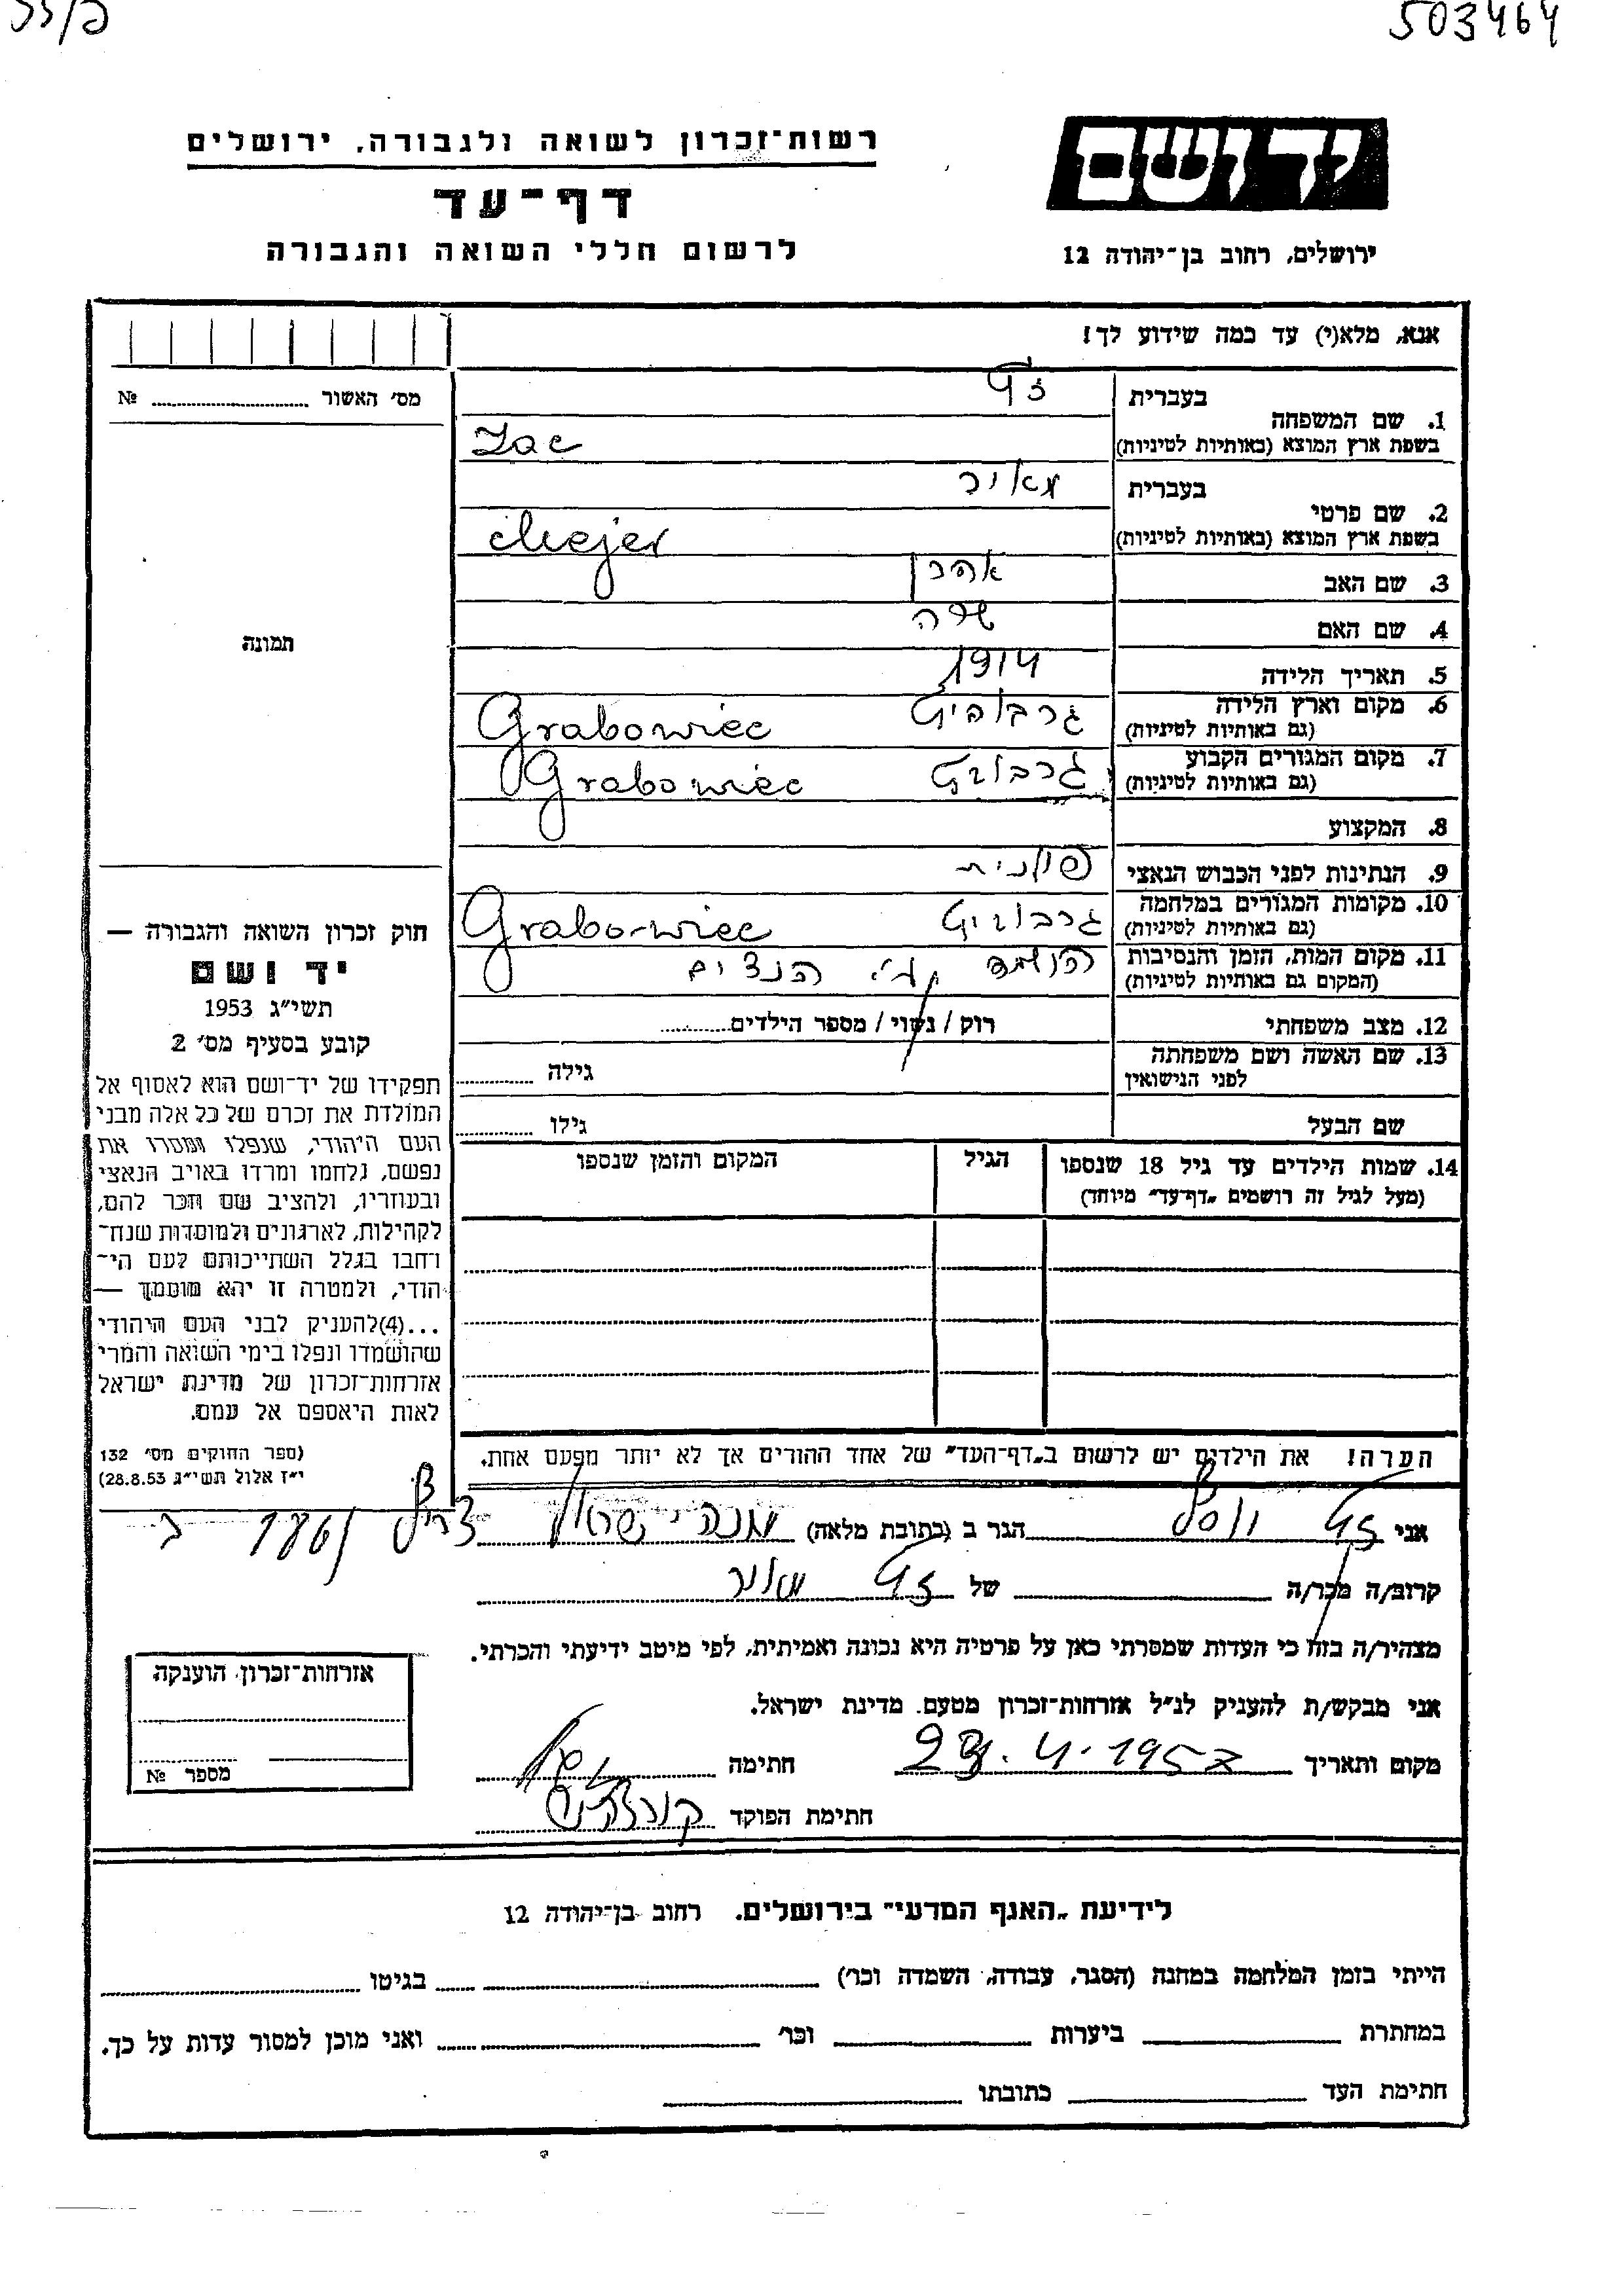 503464
רשות־זכרון לשואה ולגבורה, ירושלים
דף־עד
לרשום חללי השואה והגבורה
יד ושם
ירושלים, רחוב בן־יהודה 12
אנא, מלא(י) עד כמה שידוע לך!
מס׳ האשור № 
1. שם המשפחה בעברית זק
בשפת ארץ המוצא (באותיות לטיניות) Zac
2. שם פרטי בעברית מאיר
בשפת ארץ המוצא (באותיות לטיניות) Mejer
3. שם האב אהרן
4. שם האם שרה
5. תאריך הלידה 1914
6. מקום וארץ הלידה
(גם באותיות לטיניות) Grabowiec
7. מקום המגורים הקבוע
(גם באותיות לטיניות) גרבוויץ Grabowiec
8. המקצוע
9. הנתינות לפני הכבוש הנאצי פולנית
10. מקומות המגורים במלחמה
(גם באותיות לטיניות) גרבוויץ Grabowiec
11. מקום המות, הזמן והנסיבות
(המקום גם באותיות לטיניות) הושמד ע״י הנצים
12. מצב משפחתי רוק / נשוי / מספר הילדים
13. שם האשה ושם משפחתה
לפני הנישואין גילה
שם הבעל גילו
14. שמות הילדים עד גיל 18 שנספו הגיל המקום והזמן שנספו
(מעל לגיל זה רושמים „דף־עד״ מיוחד)
הערה! את הילדים יש לרשום ב„דף־העד״ של אחד ההורים אך לא יותר מפעם אחת.
תמונה
חוק זכרון השואה והגבורה —
יד ושם
תשי״ג 1953
קובע בסעיף מס׳ 2
תפקידו של יד־ושם הוא לאסוף אל
המולדת את זכרם של כל אלה מבני
העם היהודי, שנפלו ומסרו את
נפשם, נלחמו ומרדו באויב הנאצי
ובעוזריו, ולהציב שם וזכר להם,
לקהילות, לארגונים ולמוסדות שנח־
רחבו בגלל השתייכותם לעם הי־
הודי, ולמטרה זו יהא מוסמך —
...(4) להעניק לבני העם היהודי
שהושמדו ונפלו בימי השואה והמרי
אזרחות־זכרון של מדינת ישראל
לאות היאספם אל עמם.
(ספר החוקים מס׳ 132
י״ז אלול תשי״ג 28.8.53)
אני זק יוסף הגר ב (כתובת מלאה) מנה ישראל צריף 186/ ב
קרוב/ה מכר/ה של זק מאיר
מצהיר/ה בזה כי העדות שמסרתי כאן על פרטיה היא נכונה ואמיתית, לפי מיטב ידיעתי והכרתי.
אני מבקש/ת להעניק לנ״ל אזרחות־זכרון מטעם מדינת ישראל.
מקום ותאריך 4.1957 חתימה
חתימת הפוקד
אזרחות־זכרון הוענקה
מספר №
לידיעת „האגף המדעי״ בירושלים, רחוב בן־יהודה 12
הייתי בזמן המלחמה במחנה (הסגר, עבודה, השמדה וכו׳) בגיטו
במחתרת ביערות וכו׳ ואני מוכן למסור עדות על כך.
חתימת העד כתובתו